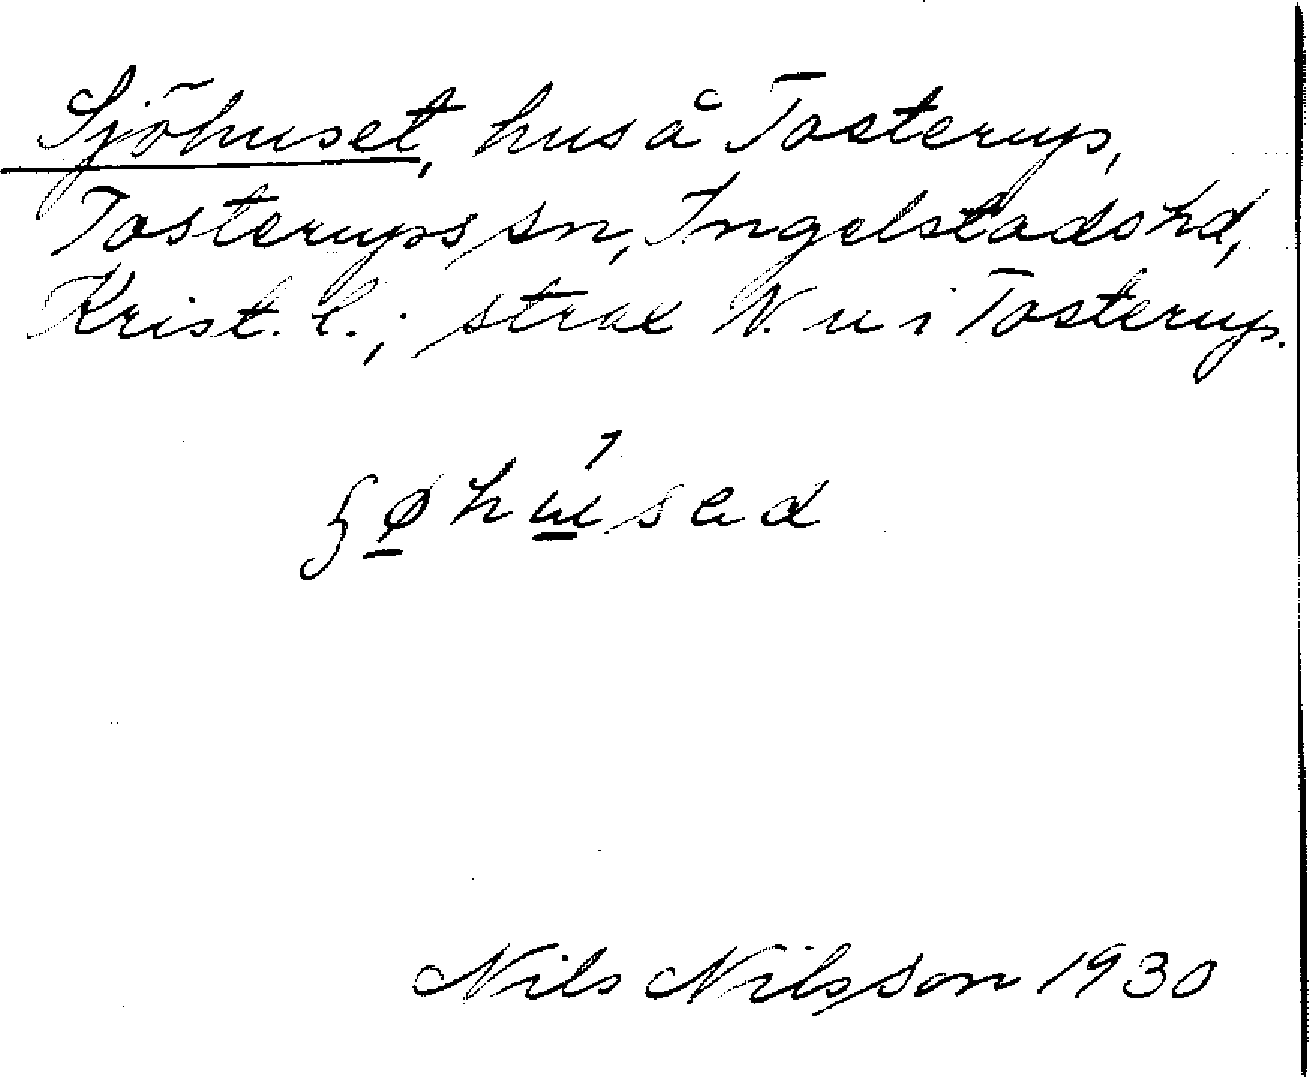 Sjöhuset, hus å Tosterup,
Tosterups sn, Ingelstads hd,
Krist. l.; strax N. u i Tosterup.
Nils Nilsson 1930